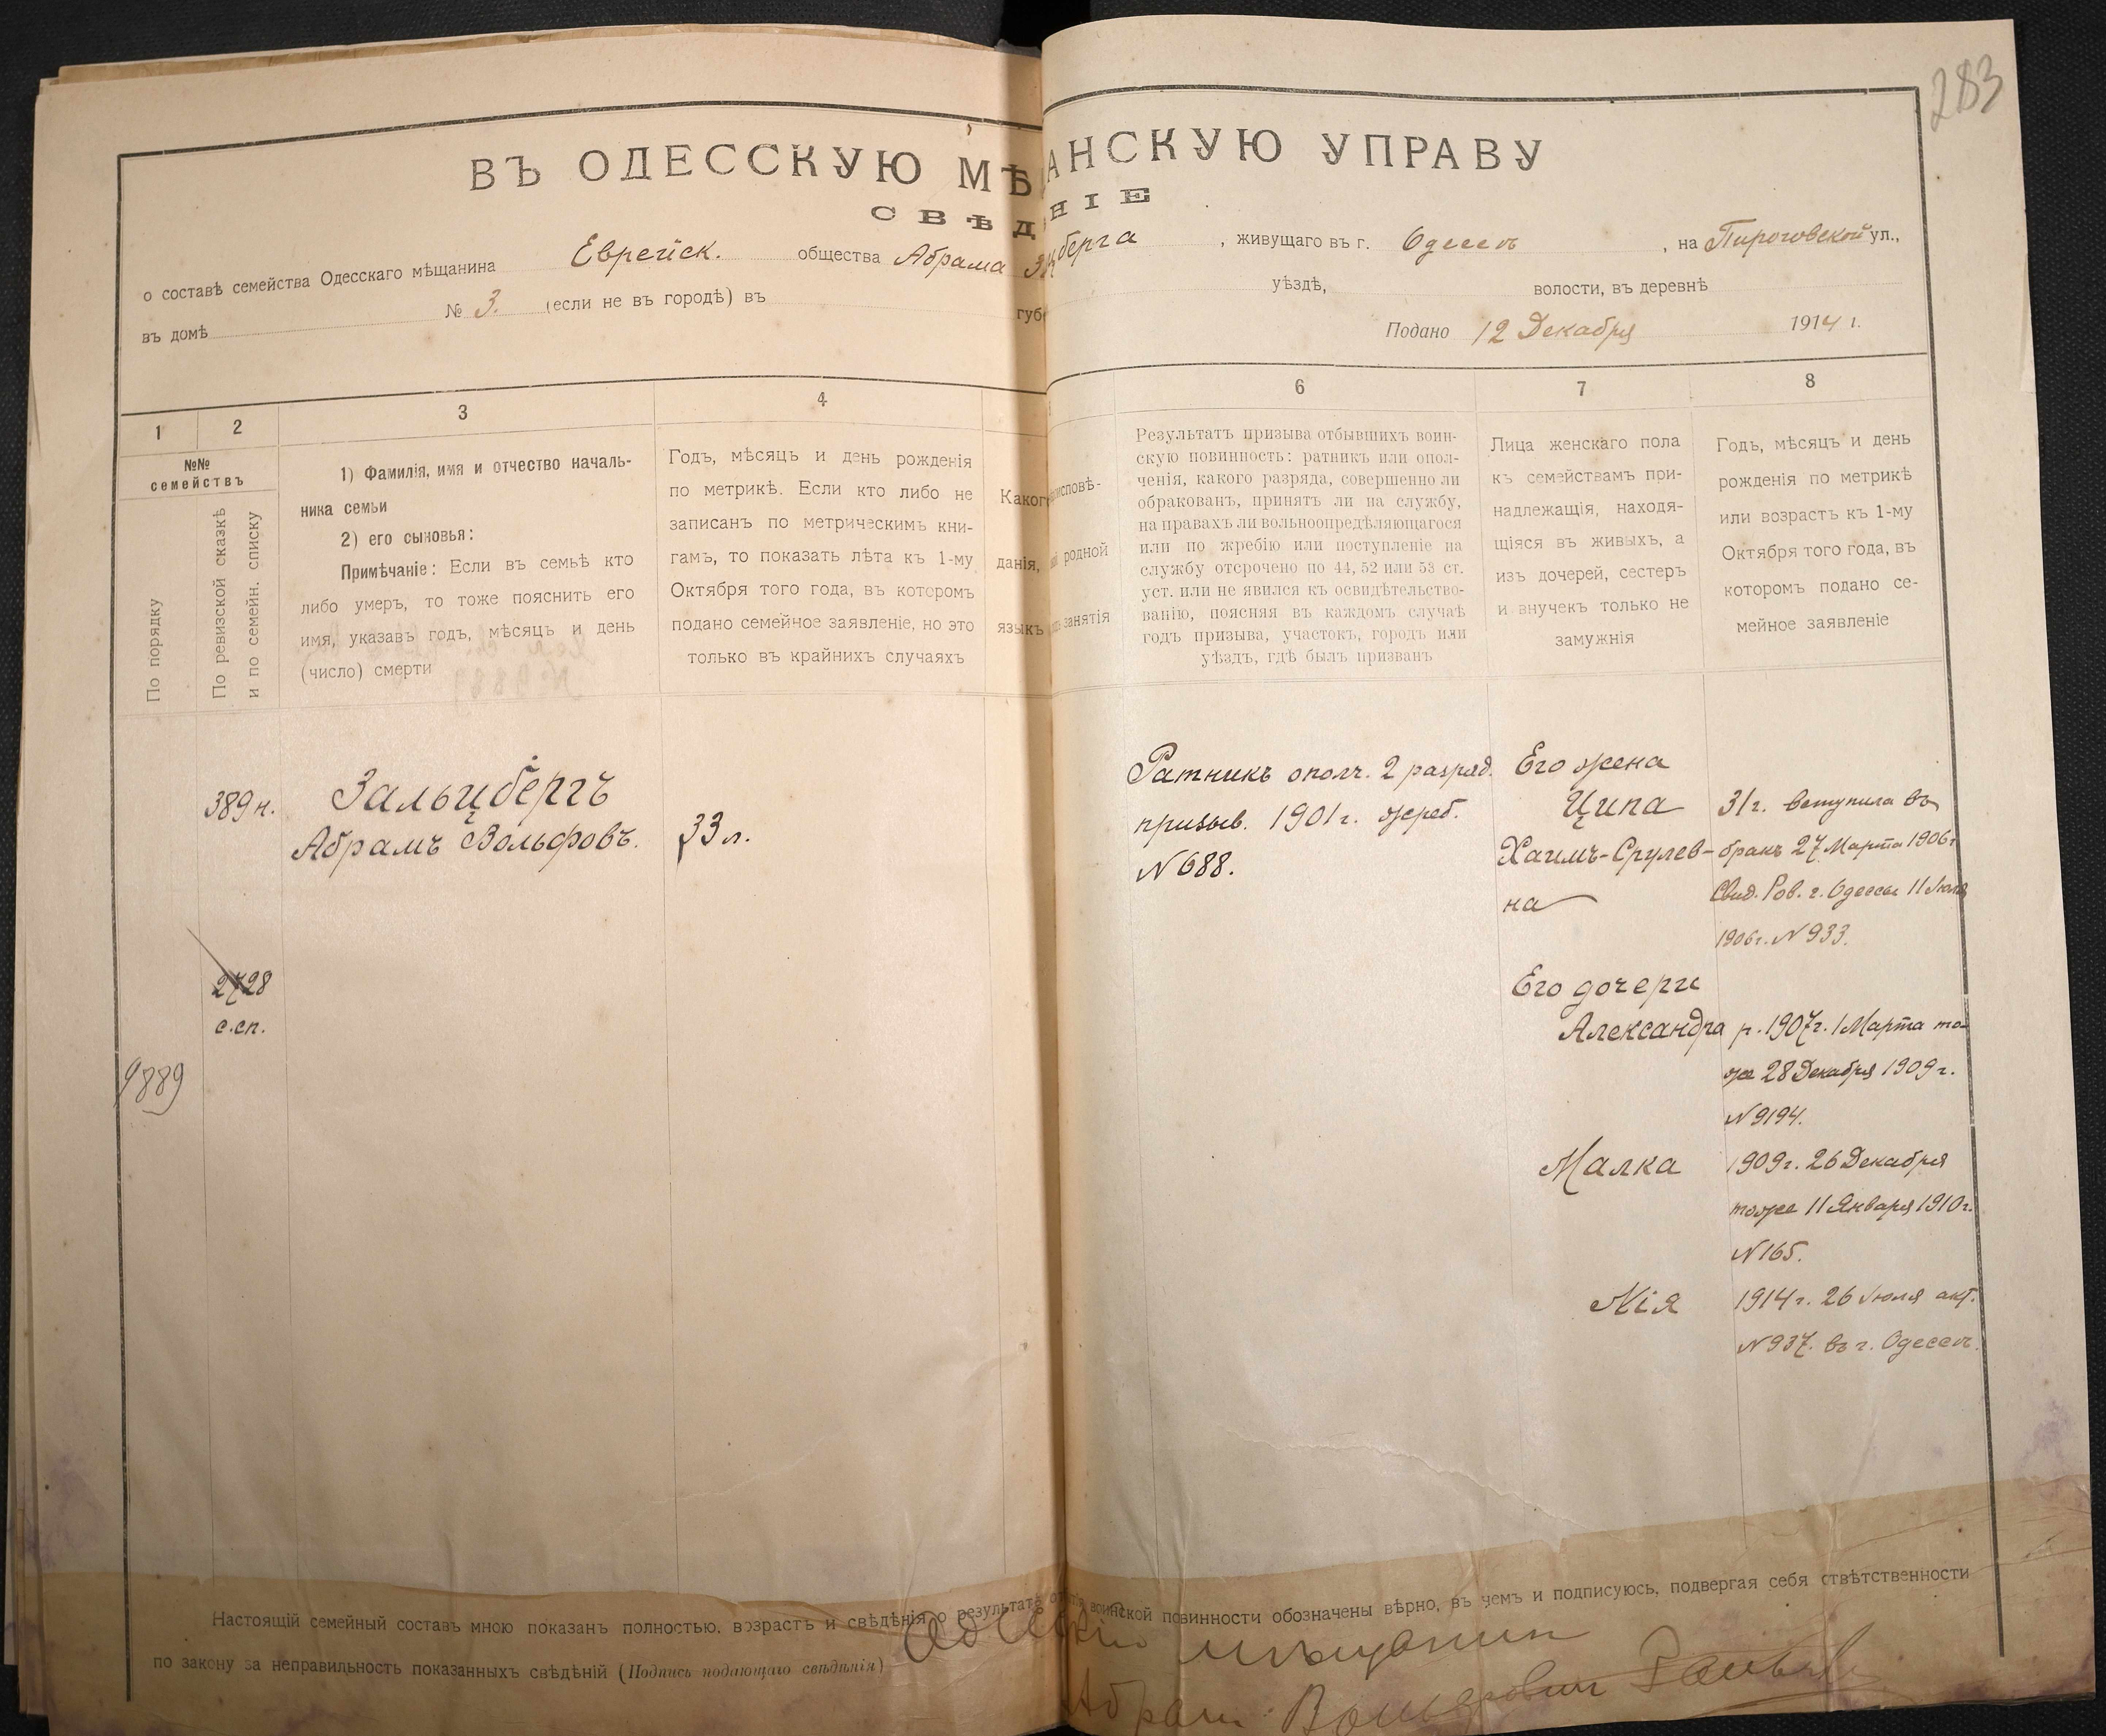 283
ВЪ ОДЕССКУЮ МѢ АНСКУЮ УПРАВУ
СВѢД НІЕ
о составѣ семейства Одесскаго мѣщанина Еврейск. общества Абрама З цберга, живущаго въ г. Одессѣ, на Пироговской ул.,
въ домѣ № 3. (если не въ городѣ) въ губ уѣздѣ, волости, въ деревнѣ
Подано 12 Декабря 1914 г.
1 2 3 4 6 7 8
№№ семействъ
По порядку
По ревизской сказкѣ
и по семейн. списку
1) Фамилія, имя и отчество началь-
ника семьи
2) его сыновья:
Примѣчаніе: Если въ семьѣ кто
либо умеръ, то тоже пояснить его
имя, указавъ годъ, мѣсяцъ и день
(число) смерти
Годъ, мѣсяцъ и день рожденія
по метрикѣ. Если кто либо не
записанъ по метрическимъ кни-
гамъ, то показать лѣта къ 1-му
Октября того года, въ которомъ
подано семейное заявленіе, но это
только въ крайнихъ случаяхъ
Каког исповѣ-
данія, родной
языкъ занятія
Результатъ призыва отбывшихъ воин-
скую повинность: ратникъ или опол-
ченія, какого разряда, совершенно ли
обракованъ, принятъ ли на службу,
на правахъ ли вольноопредѣляющагося
или по жребію или поступленіе на
службу отсрочено по 44, 52 или 53 ст.
уст. или не явился къ освидѣтельство-
ванію, поясняя въ каждомъ случаѣ
годъ призыва, участокъ, городъ или
уѣздъ, гдѣ былъ призванъ
Лица женскаго пола
къ семействамъ при-
надлежащія, находя-
щіяся въ живыхъ, а
изъ дочерей, сестеръ
и внучекъ только не
замужнія
Годъ, мѣсяцъ и день
рожденія по метрикѣ
или возрастъ къ 1-му
Октября того года, въ
которомъ подано се-
мейное заявленіе
389 н.
Зальцбергъ
Абрамъ Вольфовъ.
33 л.
2728
с.сп.
9889
Ратникъ ополч. 2 разряд.
призыв. 1901 г. жереб.
N 688.
Его жена
Ципа
Хаимъ-Срулев-
на
31 г. вступила въ
бракъ 27 Марта 1906 г.
Свид. Рав. г. Одессы 11 Июля
1906 г. N 933.
Его дочери
Александра р. 1907 г. 1 Марта то-
же 28 Декабря 1909 г.
N 9194.
Малка 1909 г. 26 Декабря
тоже 11 Января 1910 г.
N 165.
Кія 1914 г. 26 Июля акт.
N 937. въ г. Одессѣ.
Настоящій семейный составъ мною показанъ полностью, возрастъ и свѣдѣнія о результатѣ от воинской повинности обозначены вѣрно, въ чемъ и подписуюсь, подвергая себя отвѣтственности
по закону за неправильность показанныхъ свѣдѣній (Подпись подающаго свѣдѣнія)
мѣщанин
Абрам Вольфович